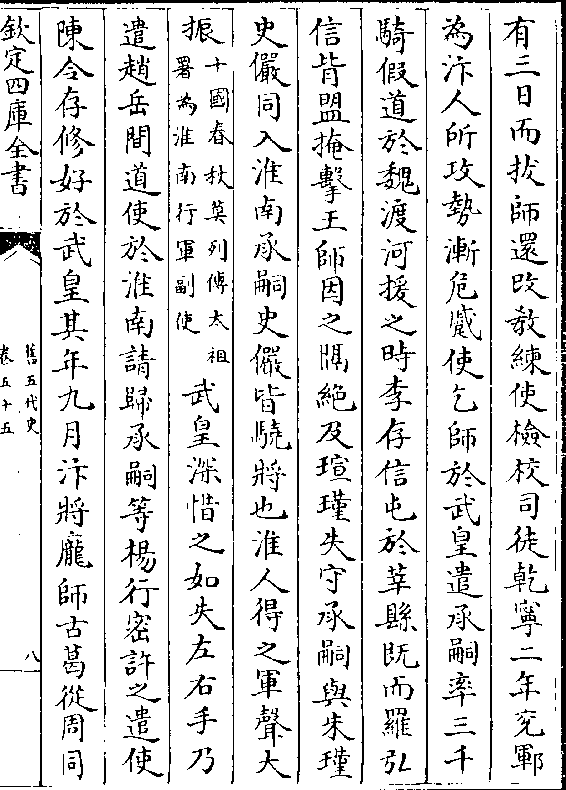 有三日而拔師還改教練使檢校司徒乾寧二年兗鄆
為汴人所攻勢漸危蹙使乞師於武皇遣承嗣率三千
騎假道於魏渡河援之時李存信屯於莘縣既而羅弘
信背盟掩擊王師因之隔絕及瑄瑾失守承嗣與朱瑾
史儼同入淮南承嗣史儼皆驍將也淮人得之軍聲大
振十國春秋莫列傳太祖署為淮南行軍副使武皇深惜之如失左右手乃
遣趙岳間道使於淮南請歸承嗣等楊行密許之遣使
陳令存修好於武皇其年九月汴將龐師古葛從周同
欽定四庫全書
舊五代史
卷五十五
八